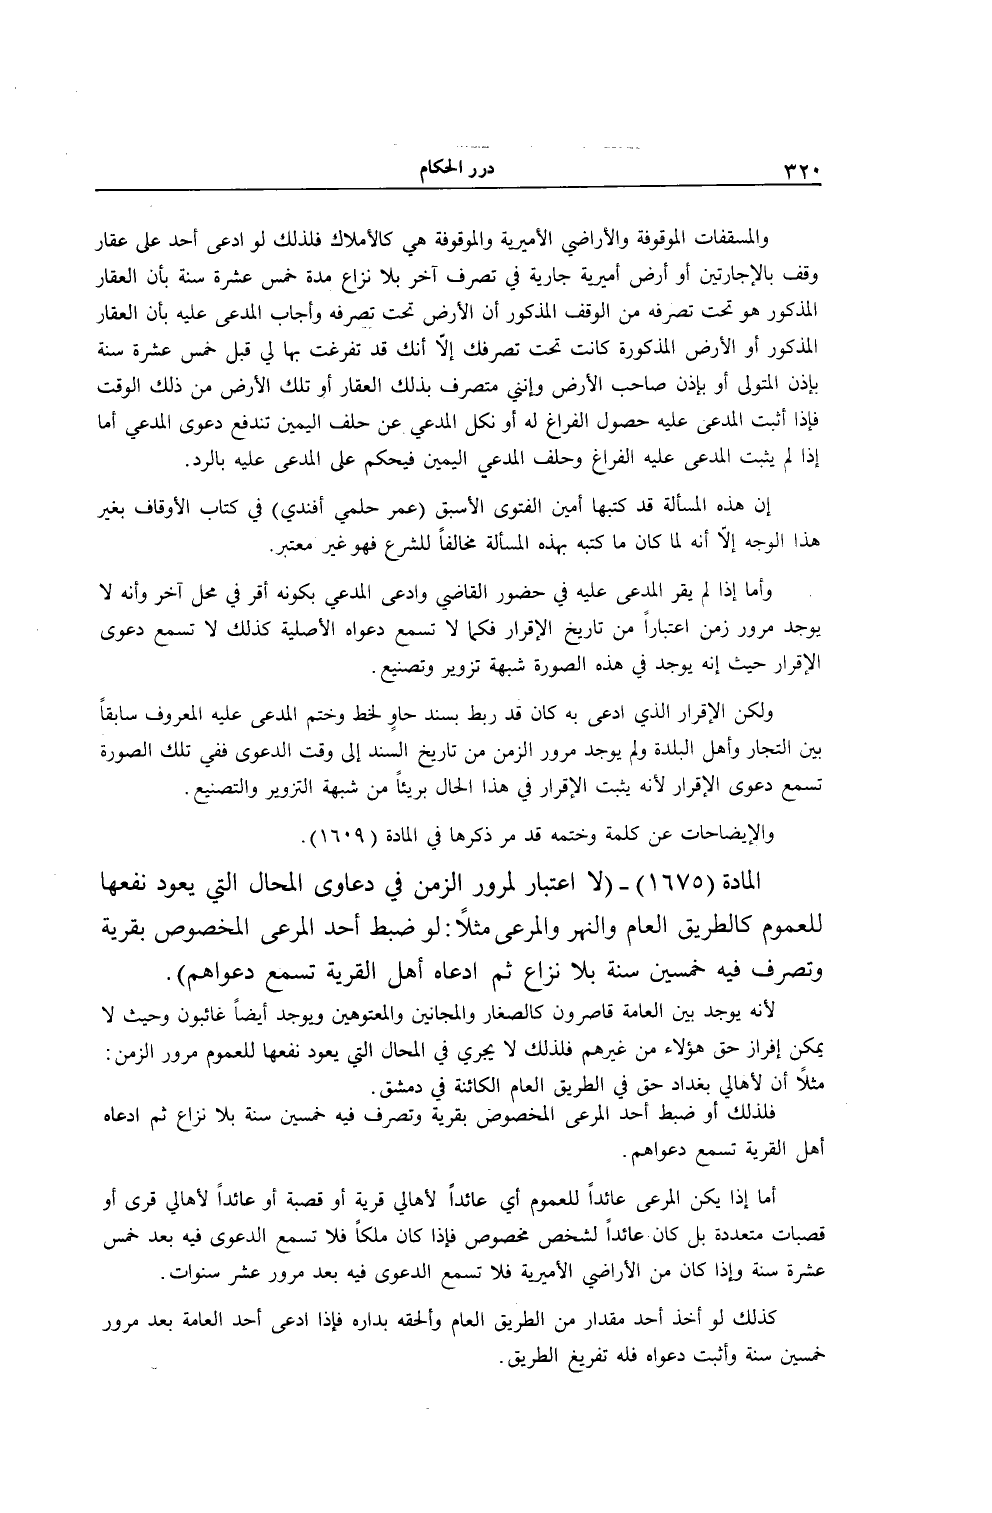 ٣٢٠
درر الحكام
والمسقفات الموقوفة والأراضي الأميرية والموقوفة هي كالأملاك فلذلك لو ادعى أحد على عقار
وقف بالإجارتين أو أرض أميرية جارية في تصرف آخر بلا نزاع مدة خمس عشرة سنة بأن العقار
المذكور هو تحت تصرفه من الوقف المذكور أن الأرض تحت تصرفه وأجاب المدعى عليه بأن العقار
المذكور أو الأرض المذكورة كانت تحت تصرفك إلّا أنك قد تفرغت بها لي قبل خمس عشرة سنة
بإذن المتولى أو بإذن صاحب الأرض وإنني متصرف بذلك العقار أو تلك الأرض من ذلك الوقت
فإذا أثبت المدعى عليه حصول الفراغ له أو نكل المدعي عن حلف اليمين تندفع دعوى المدعي أما
إذا لم يثبت المدعى عليه الفراغ وحلف المدعي اليمين فيحكم على المدعى عليه بالرد.
إن هذه المسألة قد كتبها أمين الفتوى الأسبق (عمر حلمي أفندي) في كتاب الأوقاف بغير
هذا الوجه إلّا أنه لما كان ما كتبه بهذه المسألة مخالفاً للشرع فهو غير معتبر.
وأما إذا لم يقر المدعى عليه في حضور القاضي وادعى المدعي بكونه أقر في محل آخر وأنه لا
يوجد مرور زمن اعتباراً من تاريخ الإقرار فكما لا تسمع دعواه الأصلية كذلك لا تسمع دعوى
الإقرار حيث إنه يوجد في هذه الصورة شبهة تزوير وتصنيع.
ولكن الإقرار الذي ادعى به كان قد ربط بسند حاوٍ لخط وختم المدعى عليه المعروف سابقاً
بين التجار وأهل البلدة ولم يوجد مرور الزمن من تاريخ السند إلى وقت الدعوى ففي تلك الصورة
تسمع دعوى الإقرار لأنه يثبت الإقرار في هذا الحال بريئاً من شبهة التزوير والتصنيع.
والإيضاحات عن كلمة وختمه قد مر ذكرها في المادة (١٦٠٩).
المادة (١٦٧٥) - (لا اعتبار لمرور الزمن في دعاوى المحال التي يعود نفعها
للعموم كالطريق العام والنهر والمرعى مثلًا: لو ضبط أحد المرعى المخصوص بقرية
وتصرف فيه خمسين سنة بلا نزاع ثم ادعاه أهل القرية تسمع دعواهم).
لأنه يوجد بين العامة قاصرون كالصغار والمجانين والمعتوهين ويوجد أيضاً غائبون وحيث لا
يمكن إفراز حق هؤلاء من غيرهم فلذلك لا يجري في المحال التي يعود نفعها للعموم مرور الزمن:
مثلًا أن لأهالي بغداد حق في الطريق العام الكائنة في دمشق.
فلذلك أو ضبط أحد المرعى المخصوص بقرية وتصرف فيه خمسين سنة بلا نزاع ثم ادعاه
أهل القرية تسمع دعواهم.
أما إذا يكن المرعى عائداً للعموم أي عائداً لأهالي قرية أو قصبة أو عائداً لأهالي قرى أو
قصبات متعددة بل كان عائداً لشخص مخصوص فإذا كان ملكاً فلا تسمع الدعوى فيه بعد خمس
عشرة سنة وإذا كان من الأراضي الأميرية فلا تسمع الدعوى فيه بعد مرور عشر سنوات.
كذلك لو أخذ أحد مقدار من الطريق العام وألحقه بداره فإذا ادعى أحد العامة بعد مرور
خمسين سنة وأثبت دعواه فله تفريغ الطريق.